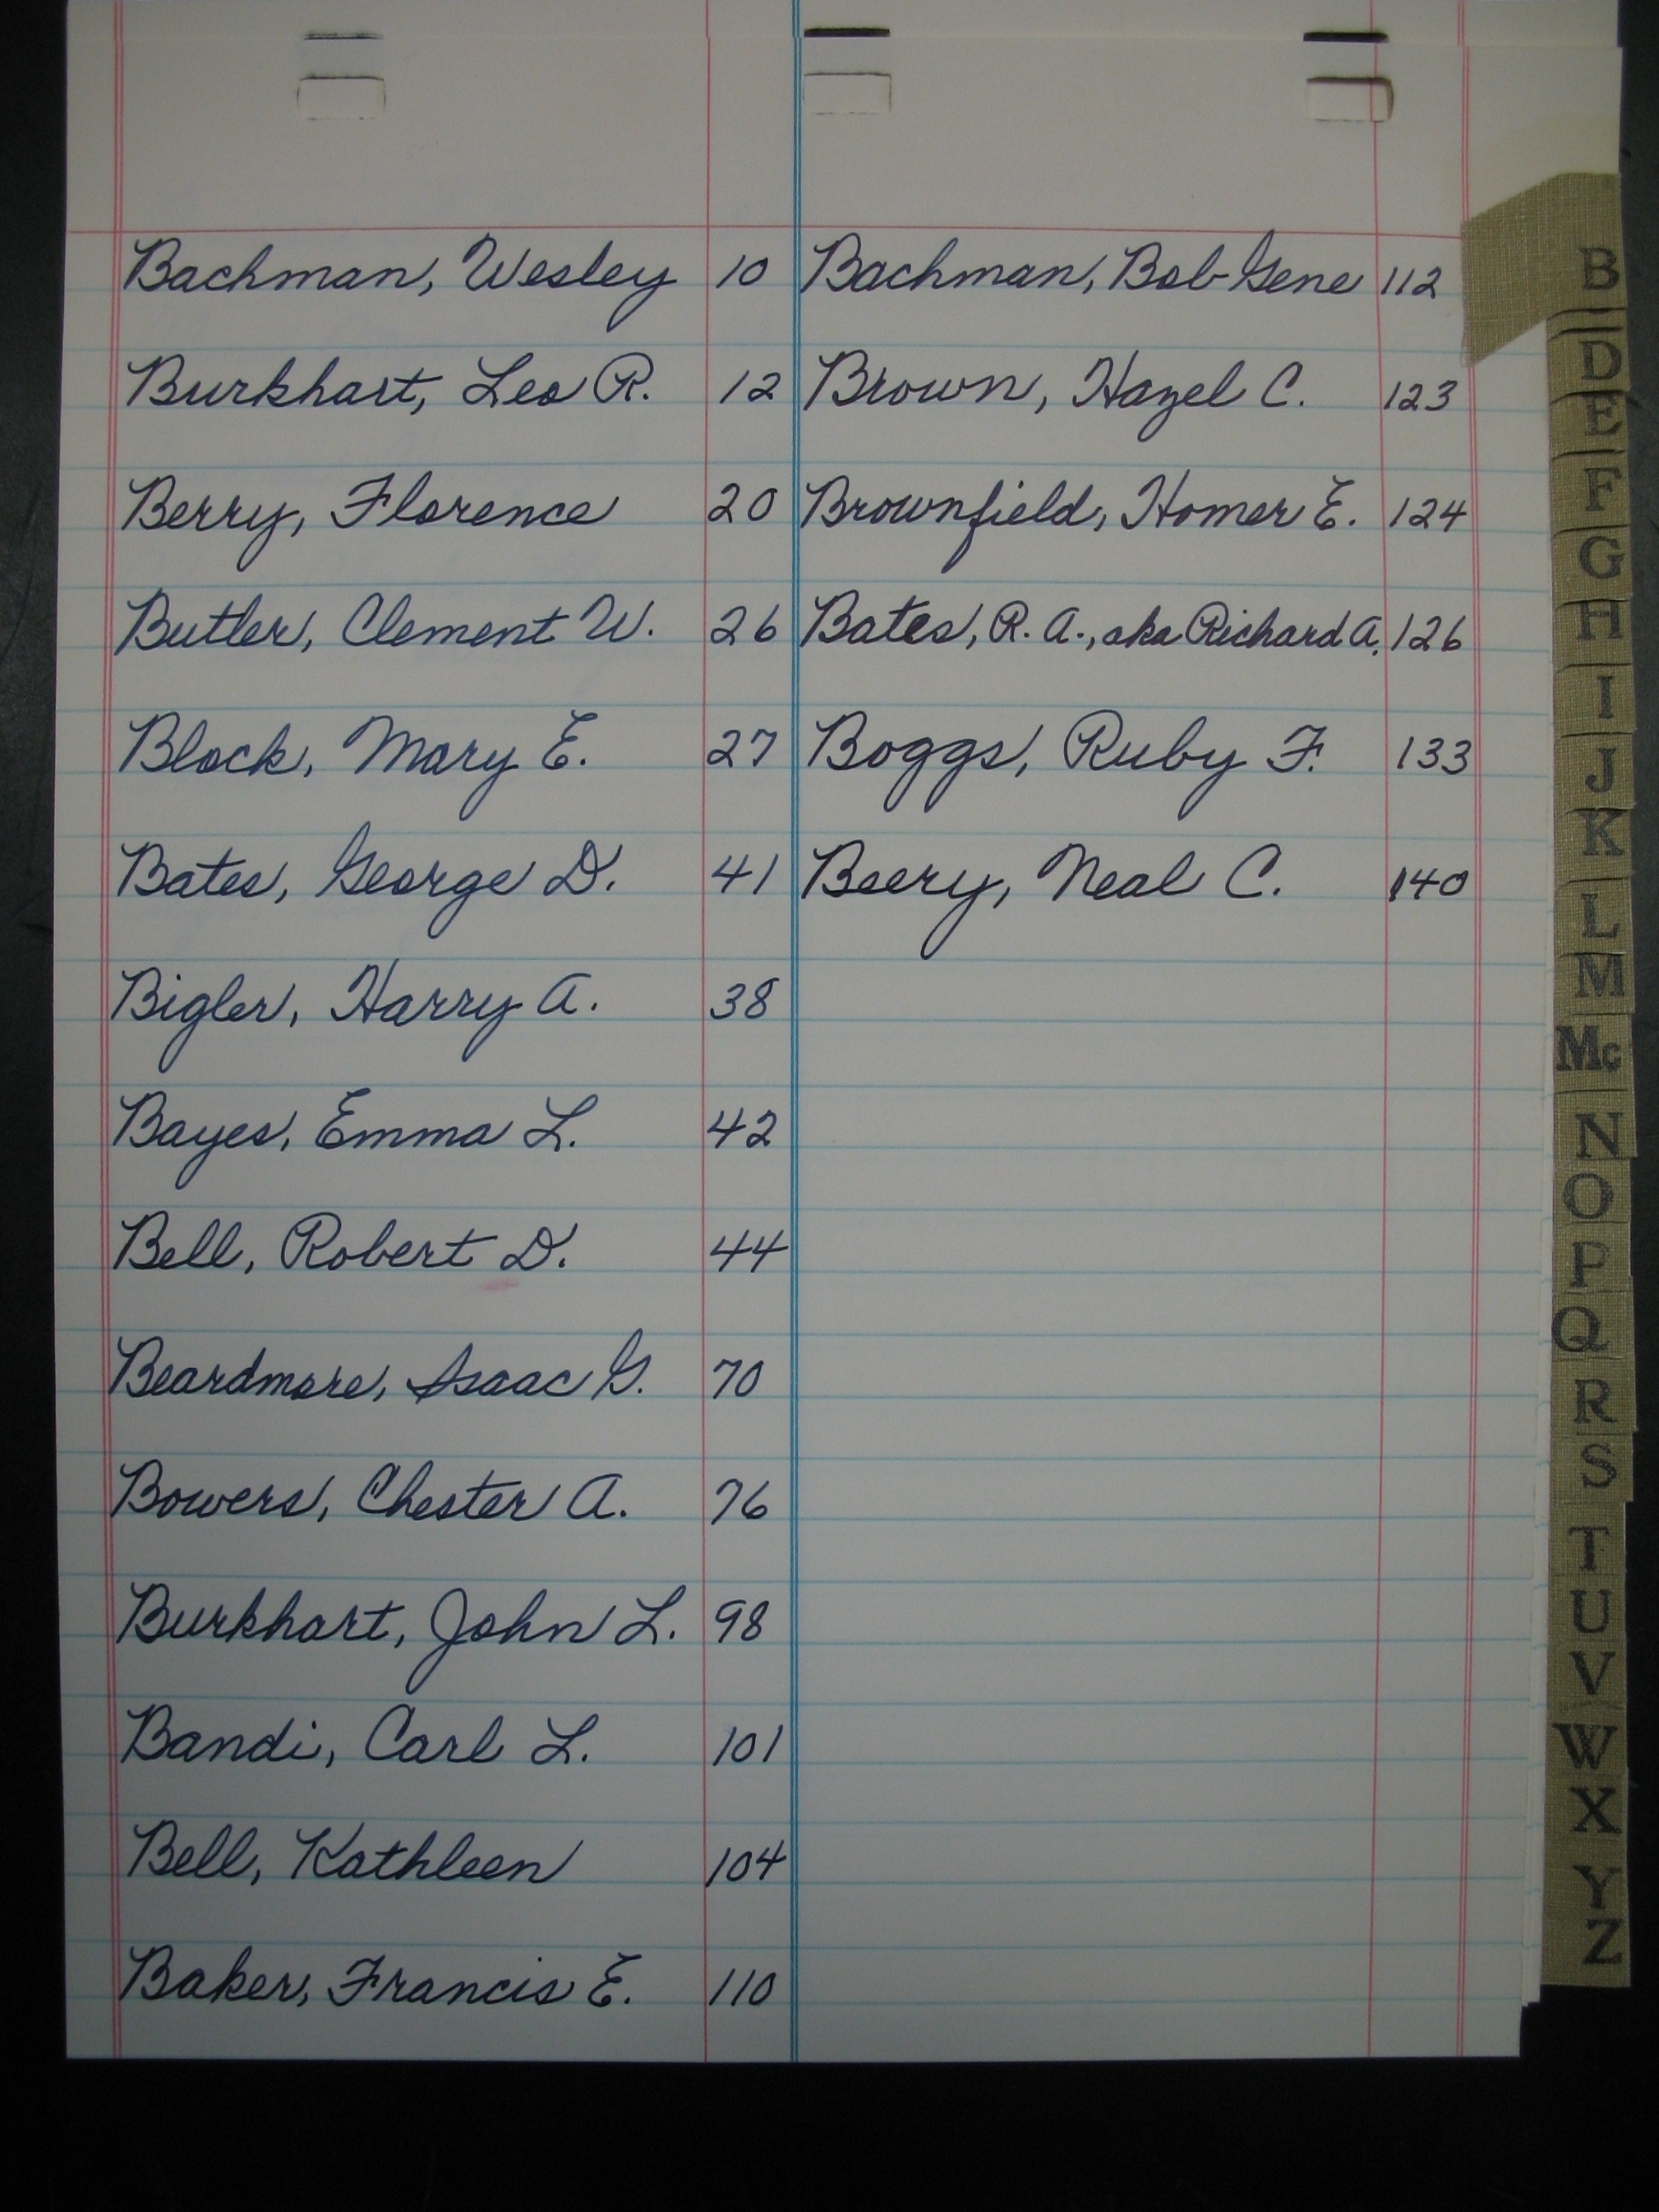 Bachman, Wesley 10
Burkhart, Leo R. 12
Berry, Florence 20
Butler, Clement W. 26
Block, Mary E. 27
Bates, George D. 41
Bigler, Harry A. 38
Bayes, Emma L. 42
Bell, Robert D. 44
Beardmore, Isaac G. 70
Bowers, Chester A. 76
Burkhart, John L. 98
Bandi, Carl L. 101
Bell, Kathleen 104
Baker, Francis E. 110
Bachman, Bob Gene 112
Brown, Hazel C. 123
Brownfield, Homer E. 124
Bates, R. A., aka Richard A. 126
Boggs, Ruby F. 133
Beery, Neal C. 140
B
D
E
F
G
H
I
J
K
L
M
Mc
N
O
P
Q
R
S
T
U
V
W
X
Y
Z